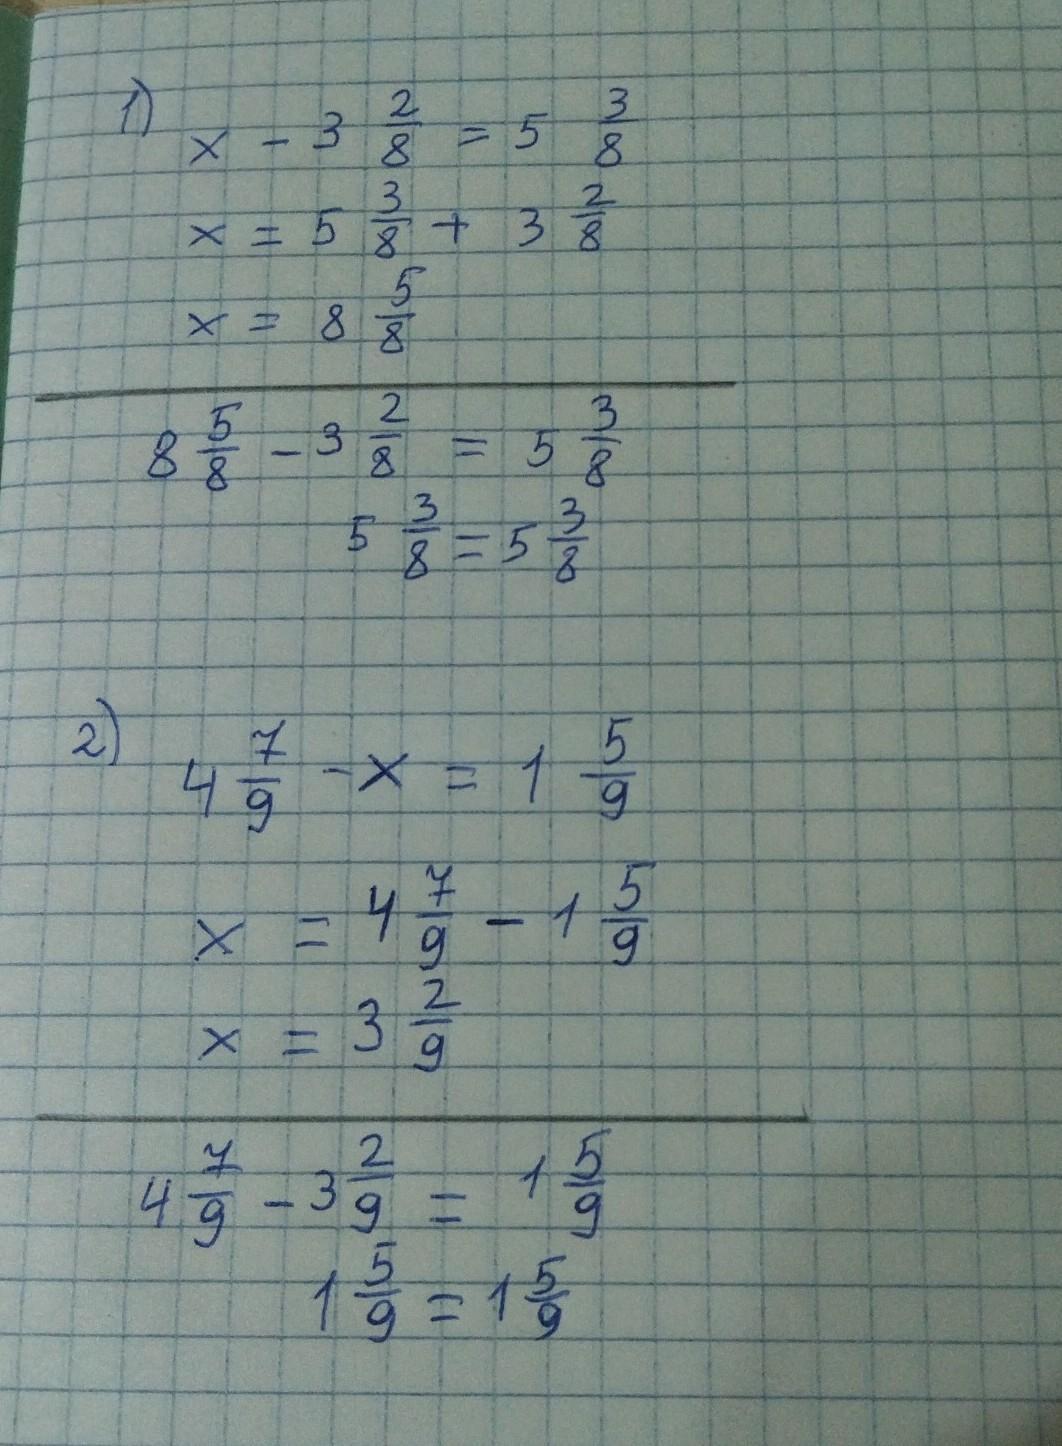 1) x - 3 2/8 = 5 3/8
x = 5 3/8 + 3 2/8
x = 8 5/8
8 5/8 - 3 2/8 = 5 3/8
5 3/8 = 5 3/8
2) 4 7/9 - x = 1 5/9
x = 4 7/9 - 1 5/9
x = 3 2/9
4 7/9 - 3 2/9 = 1 5/9
1 5/9 = 1 5/9